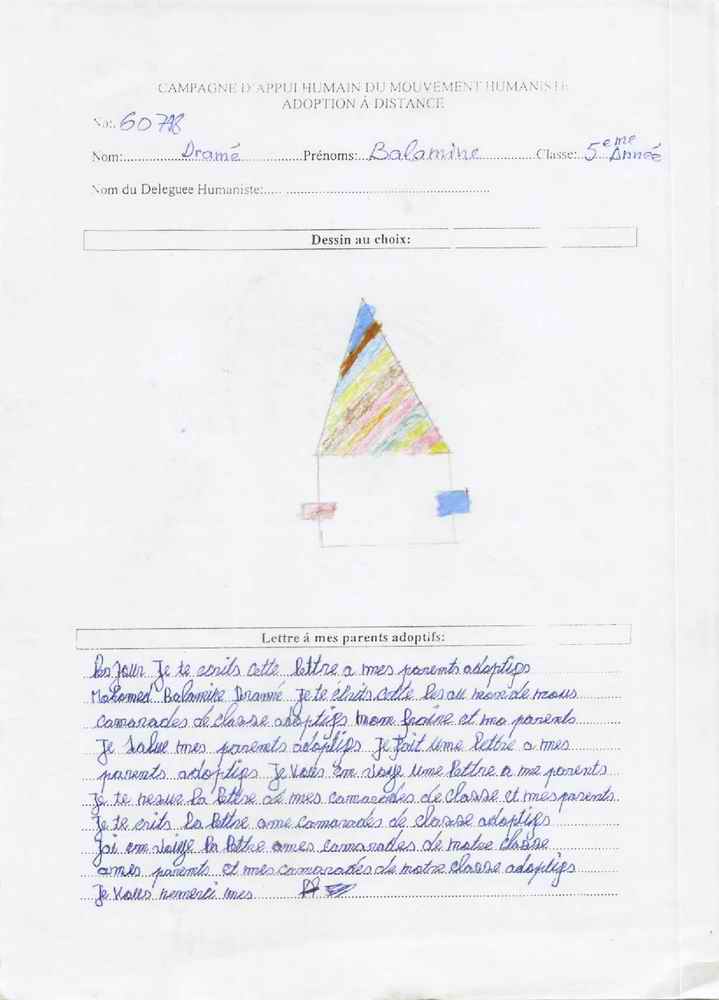 CAMPAGNE D'APPUI HUMAIN DU MOUVEMENT HUMANISTE
ADOPTION À DISTANCE
No:. 60718
Nom:............Dramé............Prénoms:...Balamine............Classe:..5eme Année
Nom du Deleguee Humaniste:..... ..................................................
Dessin au choix:
Lettre á mes parents adoptifs:
Bonjour Je te ecrits cette lettre a mes parents adoptifs
Mohomed Balamine Dramé Je te écrits cette au de nous
camarades de classe adoptifs mom et ma parents
Je Salue mes parents adoptifs Je fait une lettre a mes
parents adoptifs Je Vous en voije une lettre a me parents
Je te la lettre de mes camarades de classe et mes parents
Je te crits la lettre ame camarades de classe adoptifs
Jai en voije la lettre ames camarades de notre classe
ames parents et mes camarades de notre classe adoptifs
Je Vous remerci mes